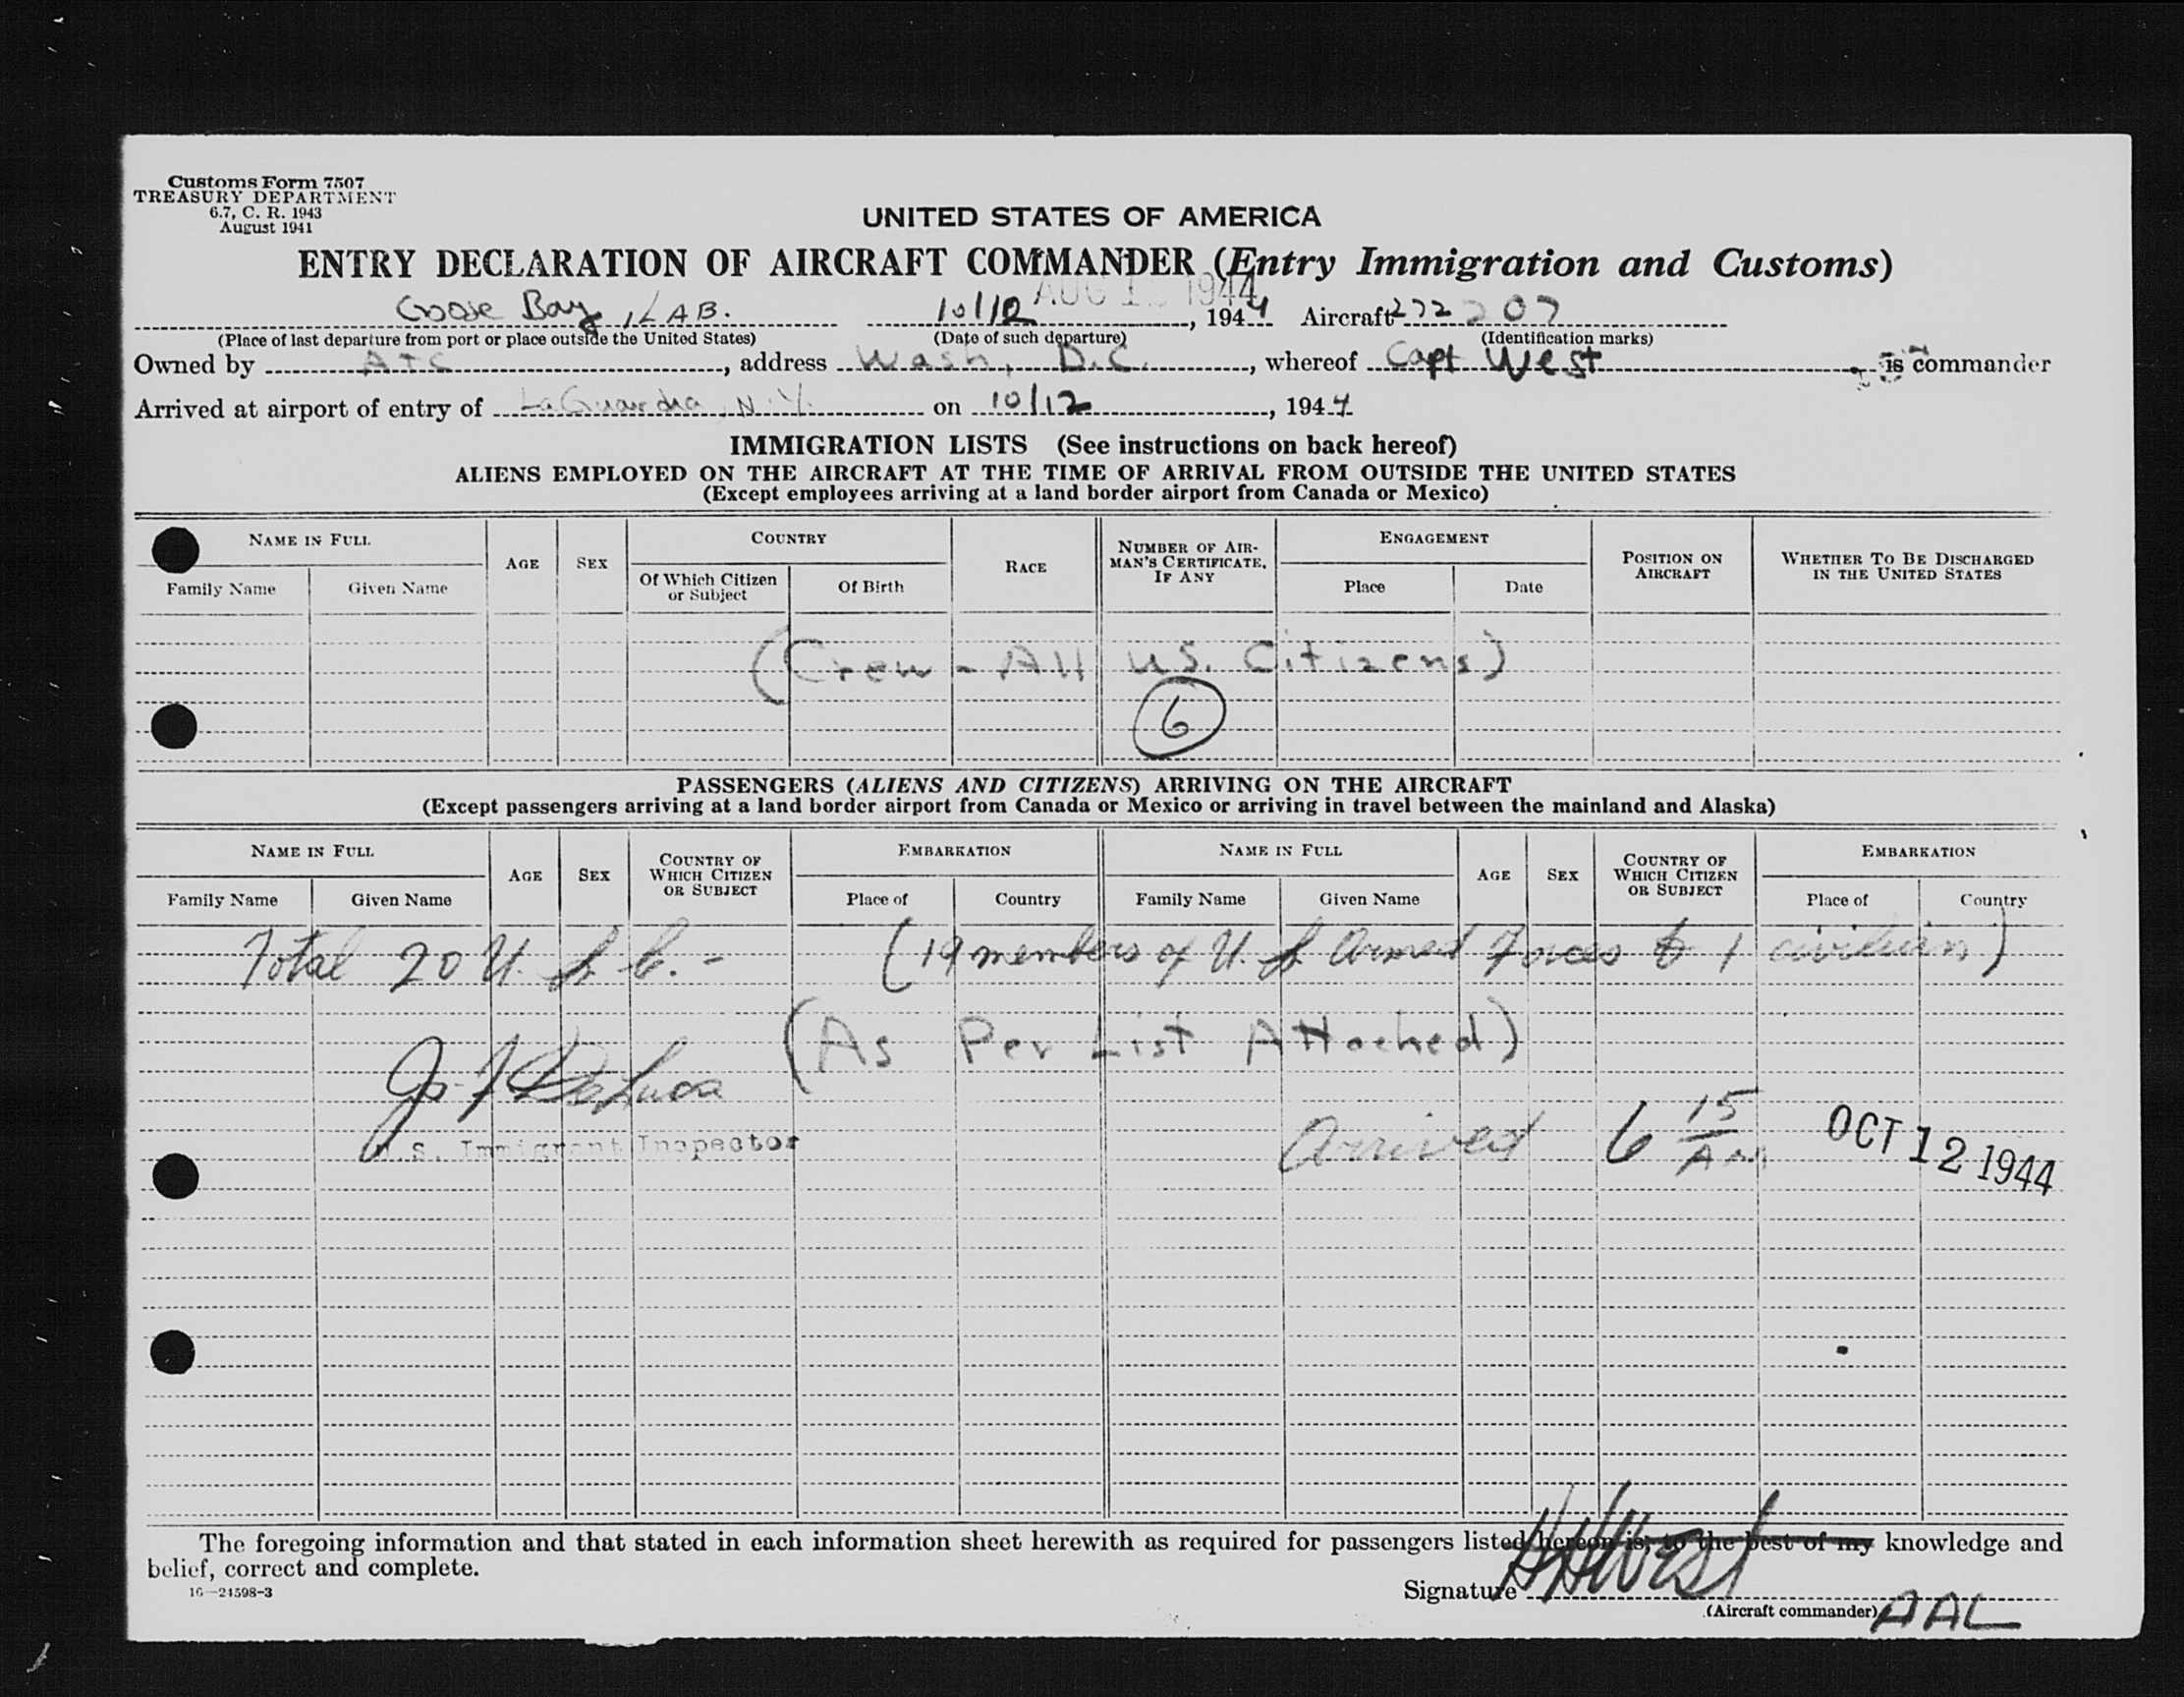 Customs Form 7507
TREASURY DEPARTMENT
6.7, C. R. 1943
August 1941
UNITED STATES OF AMERICA
ENTRY DECLARATION OF AIRCRAFT COMMANDER (Entry Immigration and Customs)
AUG 1 1944
Goose Bay, LAB. 10/12, 1944 Aircraft 272207
(Place of last departure from port or place outside the United States) (Date of such departure) (Identification marks)
Owned by ATC, address Wash, D.C., whereof Capt West is commander
Arrived at airport of entry of LaGuardia, N.Y. on 10/12, 1944
IMMIGRATION LISTS (See instructions on back hereof)
ALIENS EMPLOYED ON THE AIRCRAFT AT THE TIME OF ARRIVAL FROM OUTSIDE THE UNITED STATES
(Except employees arriving at a land border airport from Canada or Mexico)
NAME IN FULL AGE SEX COUNTRY RACE NUMBER OF AIRMAN'S CERTIFICATE, IF ANY ENGAGEMENT POSITION ON AIRCRAFT WHETHER TO BE DISCHARGED IN THE UNITED STATES
Family Name Given Name Of Which Citizen or Subject Of Birth Place Date
(Crew - All U.S. Citizens)
6
PASSENGERS (ALIENS AND CITIZENS) ARRIVING ON THE AIRCRAFT
(Except passengers arriving at a land border airport from Canada or Mexico or arriving in travel between the mainland and Alaska)
NAME IN FULL AGE SEX COUNTRY OF WHICH CITIZEN OR SUBJECT EMBARKATION NAME IN FULL AGE SEX COUNTRY OF WHICH CITIZEN OR SUBJECT EMBARKATION
Family Name Given Name Place of Country Family Name Given Name Place of Country
Total 20 U. S. C. - (19 members of U. S. Armed Forces & 1 civilian)
(As Per List Attached)
Jos. F. DeLuca
U.S. Immigrant Inspector
Arrived 6 15 AM OCT 12 1944
The foregoing information and that stated in each information sheet herewith as required for passengers listed hereon is, to the best of my knowledge and
belief, correct and complete.
16—24598-3
Signature HHWest
(Aircraft commander) AAL